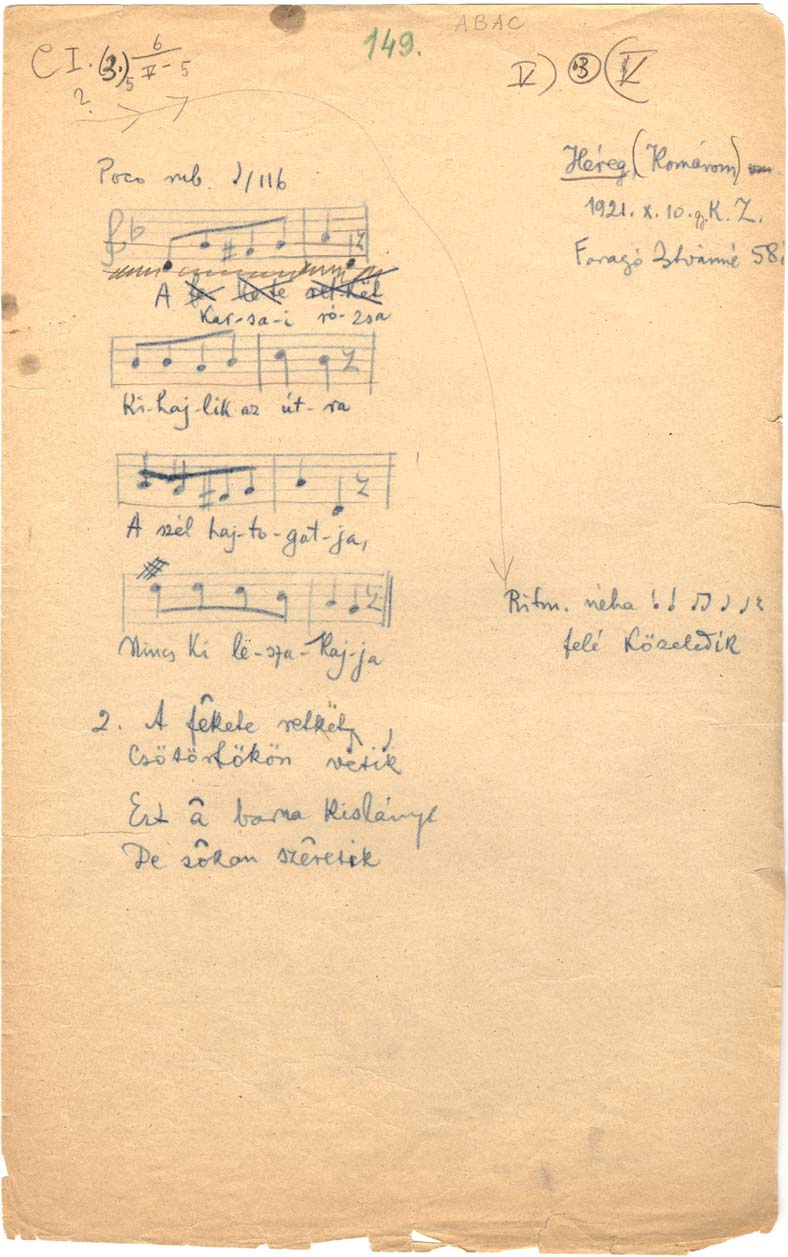 ABAC
149.
C I. (3.) 6
5 V - 5
?
V) 3 (V
Héreg (Komárom)
1921. X. 10. gy. K. Z.
Faragó Istvánné 58
Poco rub. ♩/116
A fe-kete ret-ket
Kar-sa-i ró-zsa
Ki-haj-lik az út-ra
A szél haj-to-gat-ja,
Nincs ki lë-sza-kaj-ja
Ritm. néha ♩ ♩ ♫ ♩ ♩ 𝄽
felé közeledik
2. A fêkete retkët
Csötörtökön vetik
Ezt â barna kislányt
De sôkan szêretik